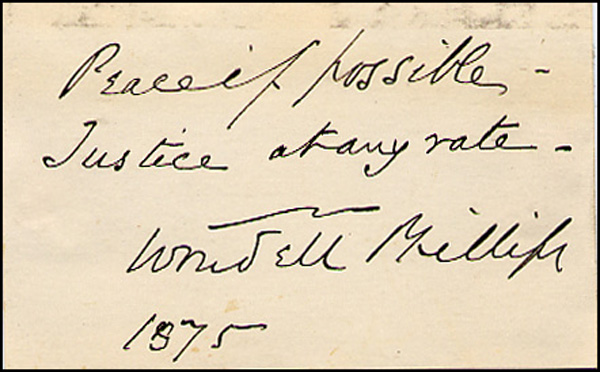 Peace if possible -
Justice at any rate -
Wendell Phillips
1875